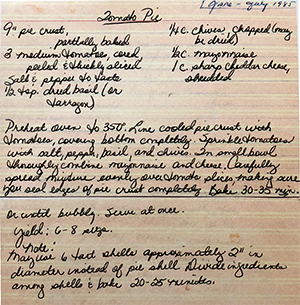 June - July 1985
Tomato Pie
9" pie crust,
partially baked
3 medium tomatoes, cored
peeled & thickly sliced
Salt & pepper to taste
1/2 tsp. dried basil (or
tarragon)
1/4 c. chives, chopped (may
be dried)
1/2 c. mayonnaise
1 c. sharp cheddar cheese,
shredded
Preheat oven to 350°. Line cooled pie crust with
tomatoes, covering bottom completely. Sprinkle tomatoes
with salt, pepper, basil, and chives. In small bowl
thoroughly combine mayonnaise and cheese. Carefully
spread mixture evenly over tomato slices, making sure
you seal edges of pie crust completely. Bake 30-35 min.
or until bubbly. Serve at once.
Yield: 6-8 svgs.
Note:
May use 6 tart shells approximately 2" in
diameter instead of pie shell. Divide ingredients
among shells & bake 20-25 minutes.